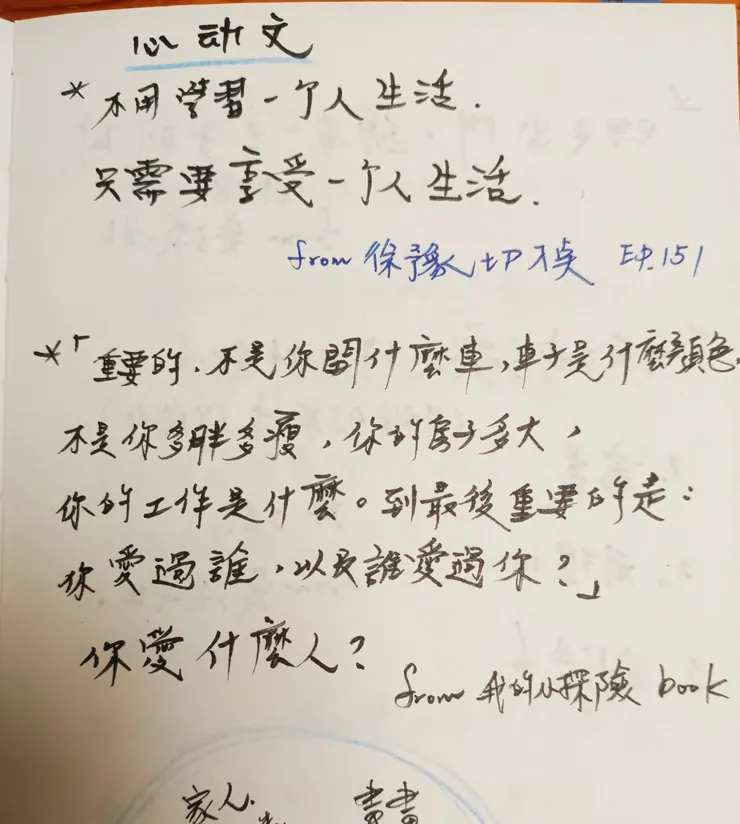 心动文
* 不用學習一个人生活.
只需要享受一个人生活.
from 徐豫 EP.151
*「重要的.不是你開什麼車,車子是什麼顏色,
不是你多胖多瘦,你的房子多大,
你的工作是什麼。到最後重要的是:
你愛過誰,以及誰愛過你?」
你愛什麼人?
from 我的小探險 book
家人.